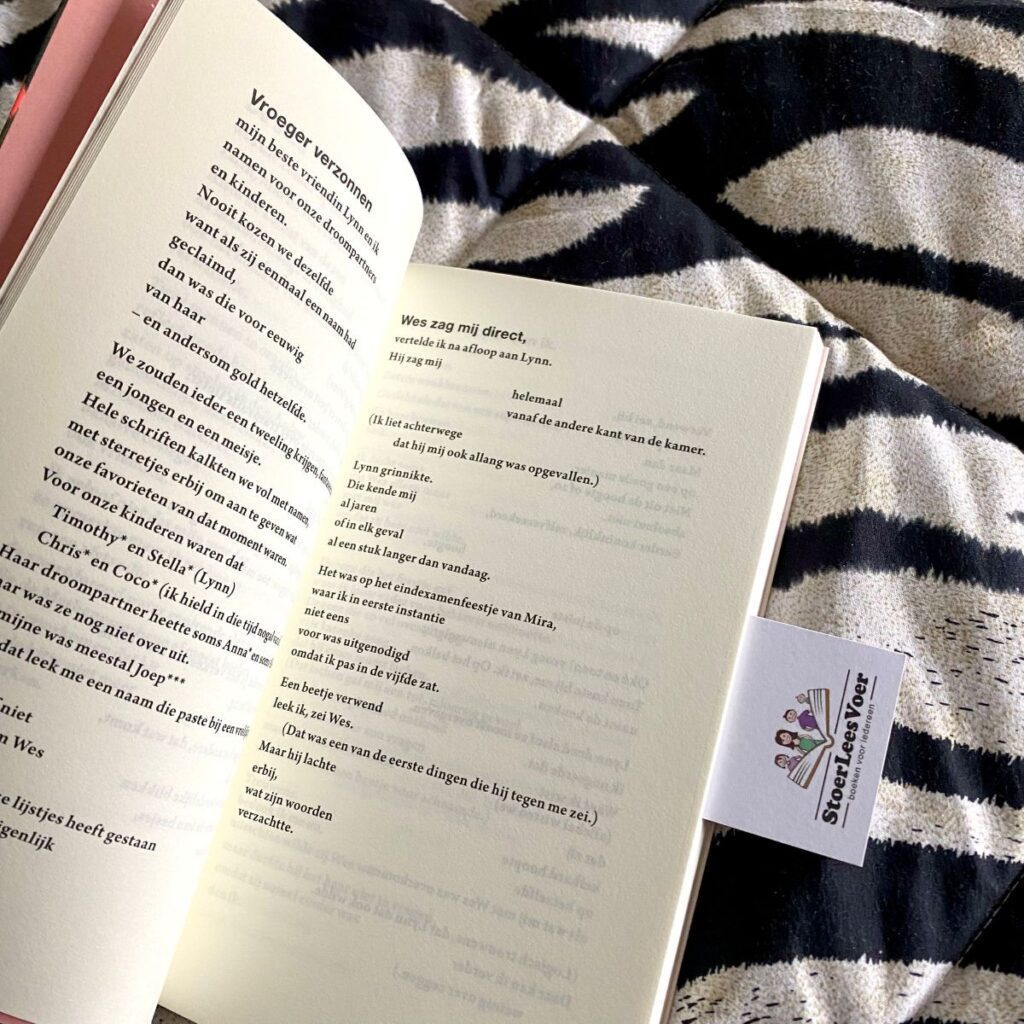 Vroeger verzonnen
mijn beste vriendin Lynn en ik
namen voor onze droompartners
en kinderen.
Nooit kozen we dezelfde
want als zij eenmaal een naam had
geclaimd,
dan was die voor eeuwig
van haar
– en andersom gold hetzelfde.
We zouden ieder een tweeling krijgen,
een jongen en een meisje.
Hele schriften kalkten we vol met namen,
met sterretjes erbij om aan te geven wat
onze favorieten van dat moment waren.
Voor onze kinderen waren dat
Timothy* en Stella* (Lynn)
Chris* en Coco* (ik hield in die tijd nogal
Haar droompartner heette soms Anna* en
was ze nog niet over uit.
mijne was meestal Joep***
dat leek me een naam die paste bij een
niet
Wes
lijstjes heeft gestaan
Wes zag mij direct,
vertelde ik na afloop aan Lynn.
Hij zag mij
helemaal
vanaf de andere kant van de kamer.
(Ik liet achterwege
dat hij mij ook allang was opgevallen.)
Lynn grinnikte.
Die kende mij
al jaren
of in elk geval
al een stuk langer dan vandaag.
Het was op het eindexamenfeestje van Mira,
waar ik in eerste instantie
niet eens
voor was uitgenodigd
omdat ik pas in de vijfde zat.
Een beetje verwend
leek ik, zei Wes.
(Dat was een van de eerste dingen die hij tegen me zei.)
Maar hij lachte
erbij,
wat zijn woorden
verzachtte.
StoerLeesVoer
boeken voor iedereen